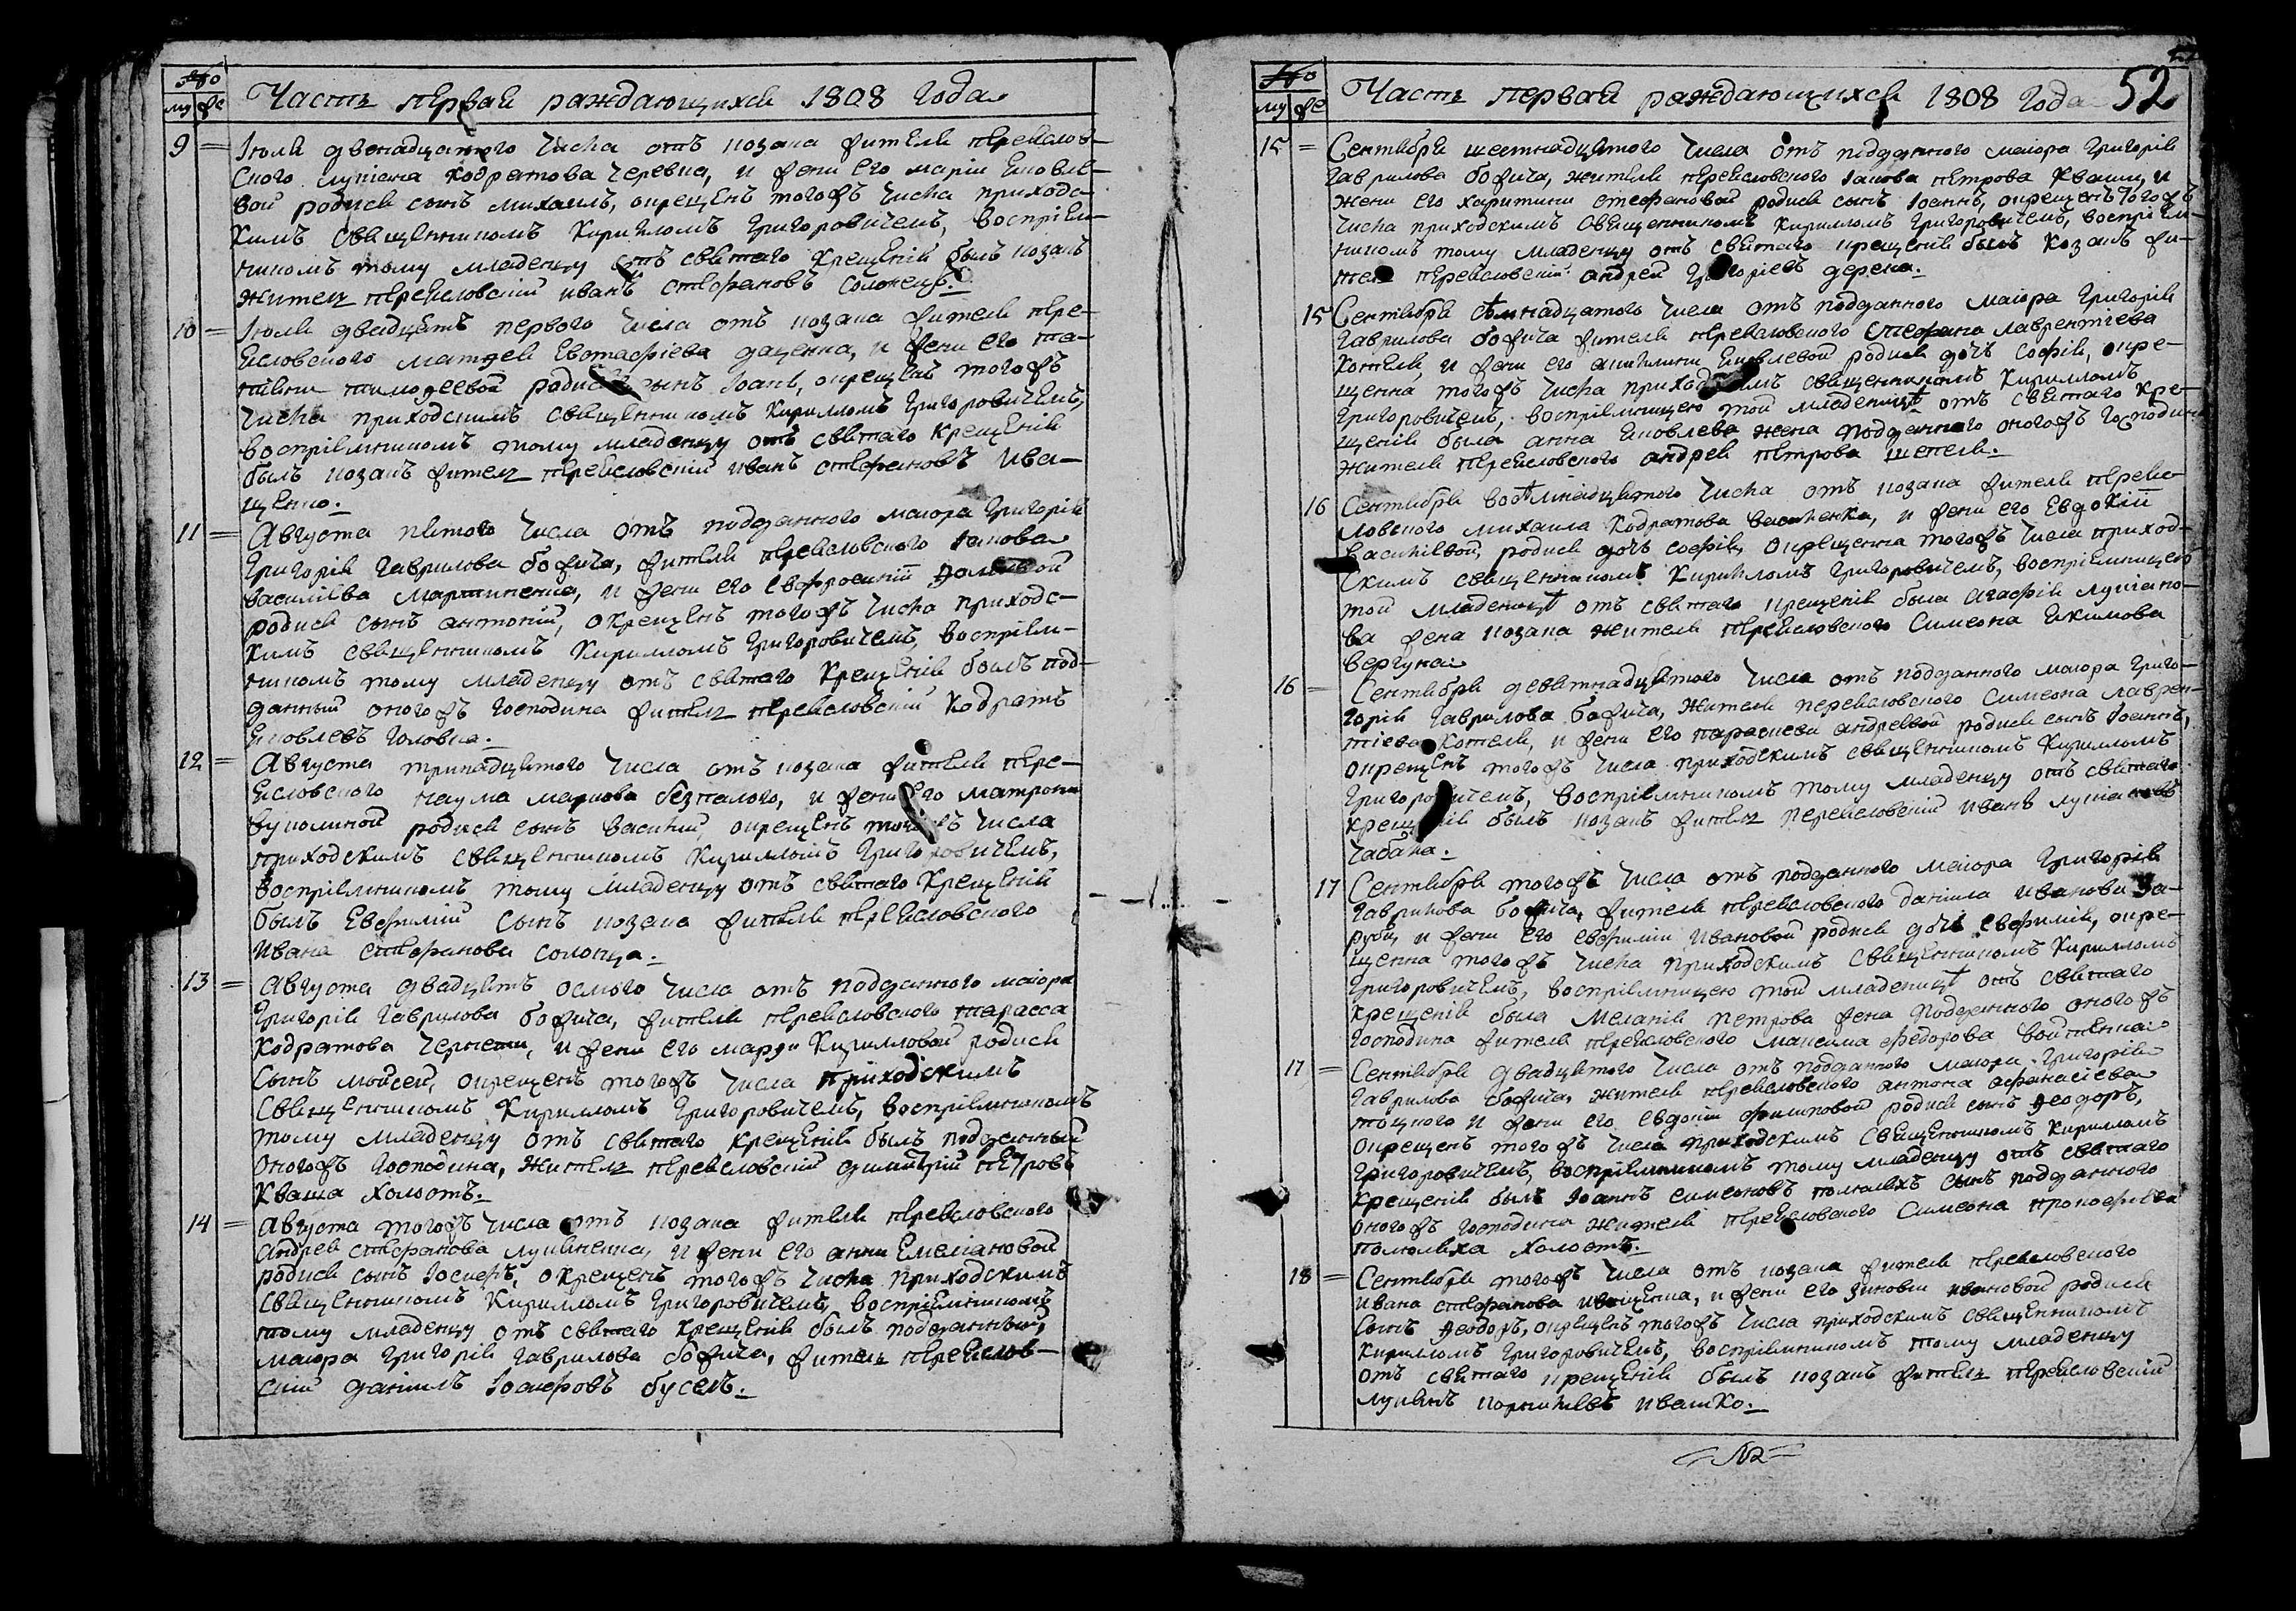 №
му
же
Часть первая раждающихся 1808 года
9 = Іюля двенадцатого числа отъ козака жителя переяслов-
ского лукіана кодратова черевка, и жены его маріи Яковле-
вой родися сынъ михаилъ, окрещенъ тогожъ числа приходс-
кимъ священникомъ Кирилломъ Григоровичемъ, воспріем-
никомъ тому младенцу отъ святаго крещенія былъ козакъ
житель переясловскій иванъ стефановъ Солонецъ.
10 = Іюля двадцать перваго числа отъ козака жителя пере-
ясловского матθея Евстафіева даценка, и жены его та-
тіяни тимоθеевой родися сынъ Іоанъ, окрещенъ тогожъ
числа приходскимъ священникомъ Кирилломъ Григоровичемъ,
воспріемникомъ тому младенцу отъ святаго крещенія
былъ козакъ житель переясловскій иванъ стефановъ Ива-
щенко.
11 = Августа пятого числа отъ подданного маіора Григорія
Григорія Гаврилова божича, жителя переясловского Іакова
василіева мартиненка, и жены его евфросиніи
родися сынъ антоній, окрещенъ тогожъ числа приходс-
кимъ священникомъ Кирилломъ Григоровичемъ, воспріем-
никомъ тому младенцу отъ святаго крещенія былъ под-
данный оногожъ господина житель переясловскій Кодратъ
Яковлевъ головка.
12 = Августа тринадцятого числа отъ козака жителя пере-
ясловского наума маркова безпалого, и жены его матрони
вуколиной родися сынъ василій, окрещенъ тогожъ числа
приходскимъ священникомъ Кирилломъ Григоровичемъ,
воспріемникомъ тому младенцу отъ святаго крещенія
былъ Евфимій сынъ козака жителя переясловского
ивана стефанова солонца.
13 = Августа двадцать осмого числа отъ подданного маіора
Григорія Гаврилова божича, жителя переясловского тарасса
Кодратова черненки, и жены его марθи Кирилловой родися
сынъ мойсей, окрещенъ тогожъ числа приходскимъ
священникомъ Кирилломъ Григоровичемъ, воспріемникомъ
тому младенцу отъ святаго крещенія былъ подданный
оногожъ господина, житель переясловскій димитрій петровъ
Кваша холостъ.
14 = Августа тогожъ числа отъ козака жителя переясловского
андрея стефанова лукяненка, и жены его анни Емеліановой
родися сынъ Іосифъ, окрещенъ тогожъ числа приходскимъ
священникомъ Кирилломъ Григоровичемъ, воспріемникомъ
тому младенцу отъ святаго крещенія былъ подданный
маіора Григорія Гаврилова божича, житель переяслов-
скій даніилъ Іосифовъ бусел.
№
му
же
Часть первая раждающихся 1808 года
52
15 = Сентября шестнадцятого числа отъ подданного маіора Григорія
Гаврилова божича, жителя переясловского Іакова петрова Кваши, и
жены его харитини стефановой родися сынъ Іоаннъ, окрещенъ тогожъ
числа приходскимъ священникомъ Кирилломъ Григоровичемъ, воспріем-
никомъ тому младенцу отъ святаго крещенія былъ козакъ жи-
тель переясловскій андрей Григоріевъ дерека.
15 Сентября семнадцатого числа отъ подданного маіора Григорія
Гаврилова божича жителя переясловского Стефана лаврентіева
Котеля, и жены его акилини Яковлевой родися дочъ Софія, окре-
щенна тогожъ числа приходскимъ священникомъ Кирилломъ
Григоровичемъ, воспріемницею той младеницѣ отъ святаго кре-
щенія была анна Яковлева жена подданного оногожъ господина
жителя переясловского андрея петрова шепеля.
16 Сентября восѣмнадцятого числа отъ козака жителя переяс-
ловского михаила Кодратова василенка, и жены его Евдокіи
василіевой, родися дочъ софія, окрещенна тогожъ числа приход-
скимъ священникомъ Кирилломъ Григоровичемъ, воспріемницею
той младеницѣ отъ святаго крещенія была агафія лукіано-
ва жена козака жителя переясловского Симеона Екимова
вергуна
16 = Сентября девятнадцятого числа отъ подданного маіора Григо-
горія Гаврилова божича, жителя переясловского Симеона лаврен-
тіева Котеля, и жены его параскеви андреевой родися сынъ Іоаннъ,
окрещенъ тогожъ числа приходскимъ священникомъ Кирилломъ
Григоровичемъ, воспріемникомъ тому младенцу отъ святаго
крещенія былъ козакъ житель переясловскій иванъ лукіановъ
чабана.
17 Сентября тогожъ числа отъ подданного маіора Григорія
Гаврилова божича, жителя переясловского даніила иванова За-
руби, и жены его евфиміи ивановой родися дочъ евфимія, окре-
щенна тогожъ числа приходскимъ священникомъ Кирилломъ
Григоровичемъ, воспріемницею той младеницѣ отъ святаго
крещенія была меланія петрова жена подданного оногожъ
господина жителя переясловского максима федорова войтенка
17 = Сентября двадцятого числа отъ подданного маіора Григорія
Гаврилова божича, жителя переясловского антона афанасіева
и жены его евдокіи филиповой родися сынъ θеодоръ,
окрещенъ тогожъ числа приходскимъ священникомъ Кирилломъ
Григоровичемъ, воспріемникомъ тому младенцу отъ святаго
крещенія былъ Іоаннъ симеоновъ сынъ подданного
оногожъ господина жителя переясловского Симеона прокофіева
холостъ.
18 = Сентября тогожъ числа отъ козака жителя переясловского
ивана стефанова иващенка, и жены его Зиновіи ивановой родися
сынъ θеодоръ, окрещенъ тогожъ числа приходскимъ священникомъ
Кирилломъ Григоровичемъ, воспріемникомъ тому младенцу
отъ святаго крещенія былъ козакъ житель переясловскій
лукянъ корнилевъ ивашко.